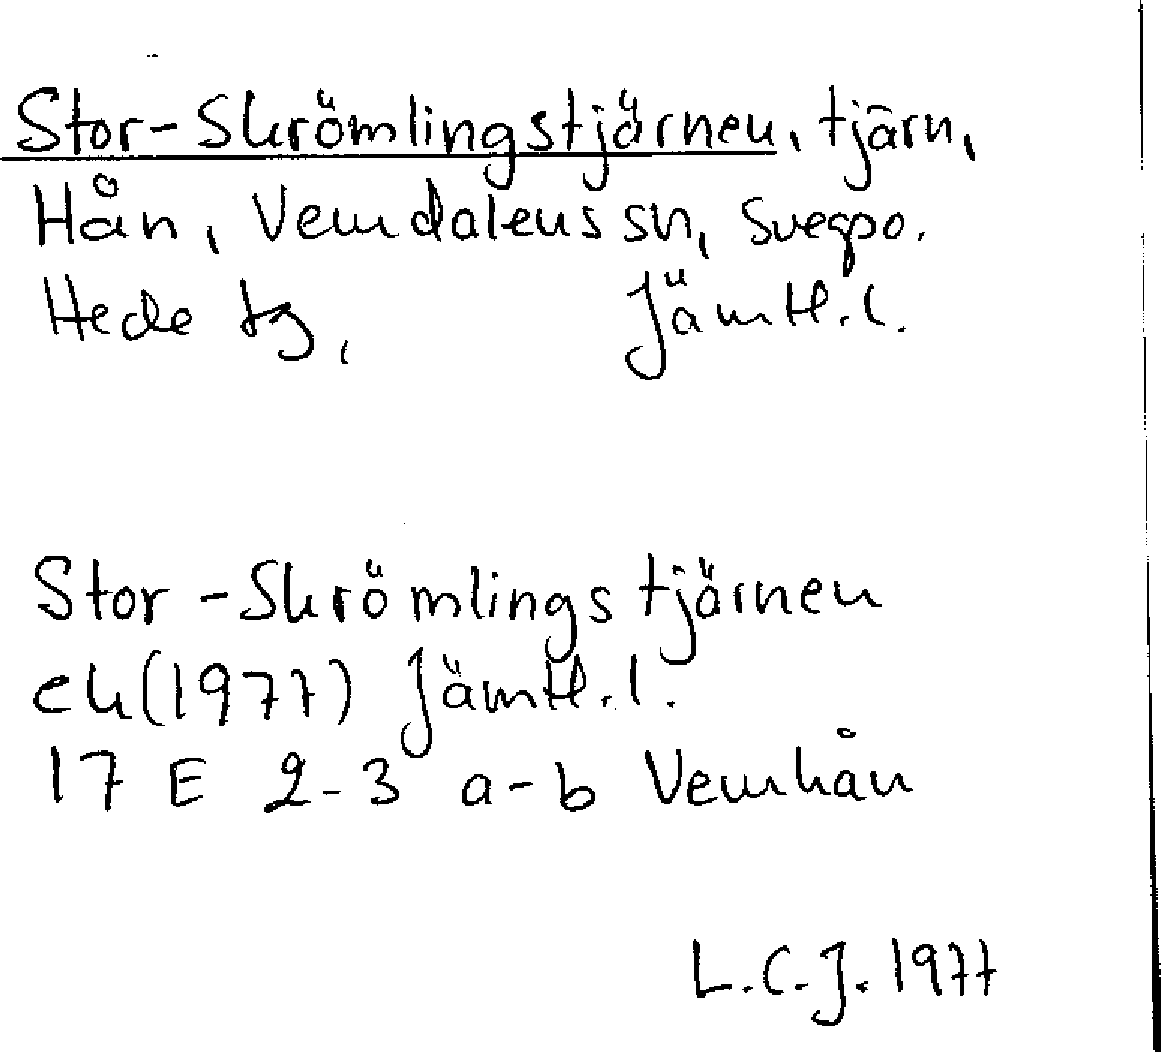 Stor-Skrömlingstjärnen, tjärn,
Hån, Vemdalens sn, Svegpo.
Hede tg, Jämtl.l.
Stor-Skrömlingstjärnen
ek(1977) Jämtl.l.
17 E 2-3 a-b Vemhån
L.C.J. 1977